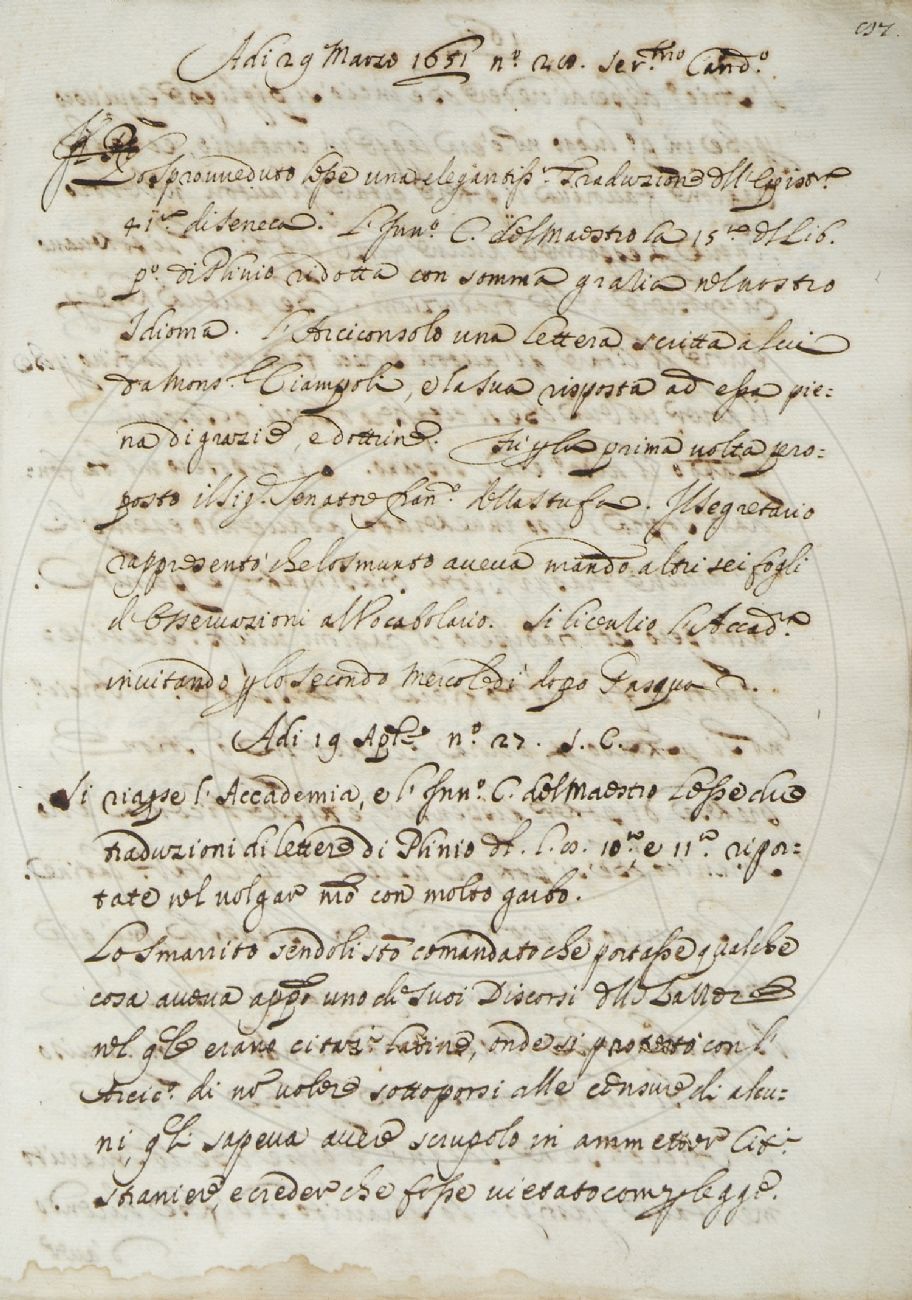 Adi 29 Marzo 1651 n.º 20. Ser.mo Cand.º
Lo Sprovveduto lesse una elegantiss.ª Traduzione dell'Epistª
41.ª di Seneca. L'Inn.º C. del Maestro la 15.ma del Lib.
p.º di Plinio ridotta con somma grazia nel nostro
Idioma. L'Arciconsolo una lettera scritta a lui
da Mons.r Ciampoli, e la sua risposta ad essa pie:
na di grazie, e dottrine. Fu p la prima volta pro:
posto il Sig.r Senatore Fran.º della Stufa. Il Segretario
rappresentò che lo Smunto aveva mandº altri sei fogli
di Osservazioni al Vocabolario. Si licenziò l'Accad.ª
invitando p lo secondo Mercoledì dopo Pasqua
Adi 19 Aple. n.º 27. S. C.
Si riapse l'Accademia, e l'Inn.º C. del Maestro Lesse due
traduzioni di lettere di Plinio dl. l.º 10.ª, e 11.ª ripor:
tate nel volgar nro con molto garbo.
Lo Smarrito sendoli stº comandato che portasse qualche
cosa aveva appº uno de suoi Discorsi
nel qle erano citazi.ni latine, onde si protestò con l'
Arcic.º di nº volere sottoporsi alle censure di alcu:
ni, qli sapeva avere scrupolo in ammetter
straniere, e creder che fosse vietato com p legge.